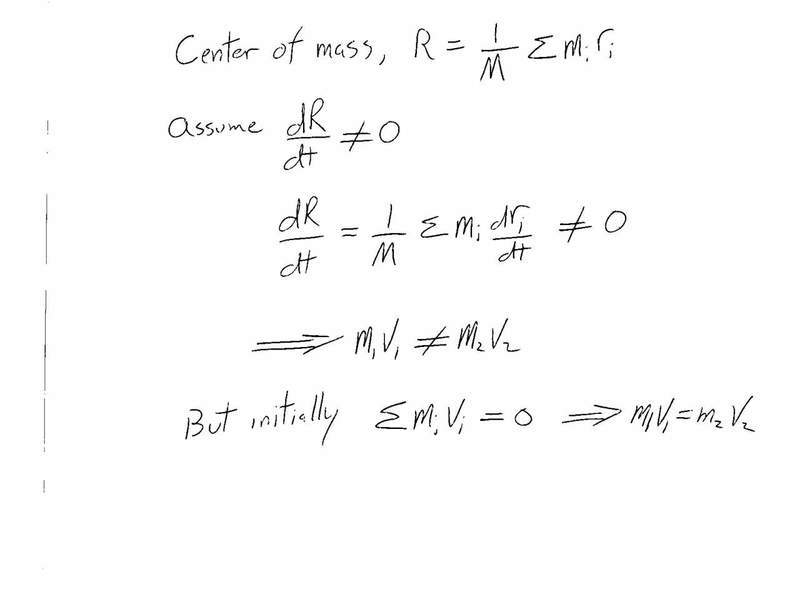 Center of mass, R = 1/M Σ mᵢ rᵢ
Assume dR/dt ≠ 0
dR/dt = 1/M Σ mᵢ drᵢ/dt ≠ 0
⟹ m₁V₁ ≠ m₂V₂
But initially Σ mᵢ Vᵢ = 0 ⟹ m₁V₁ = m₂V₂